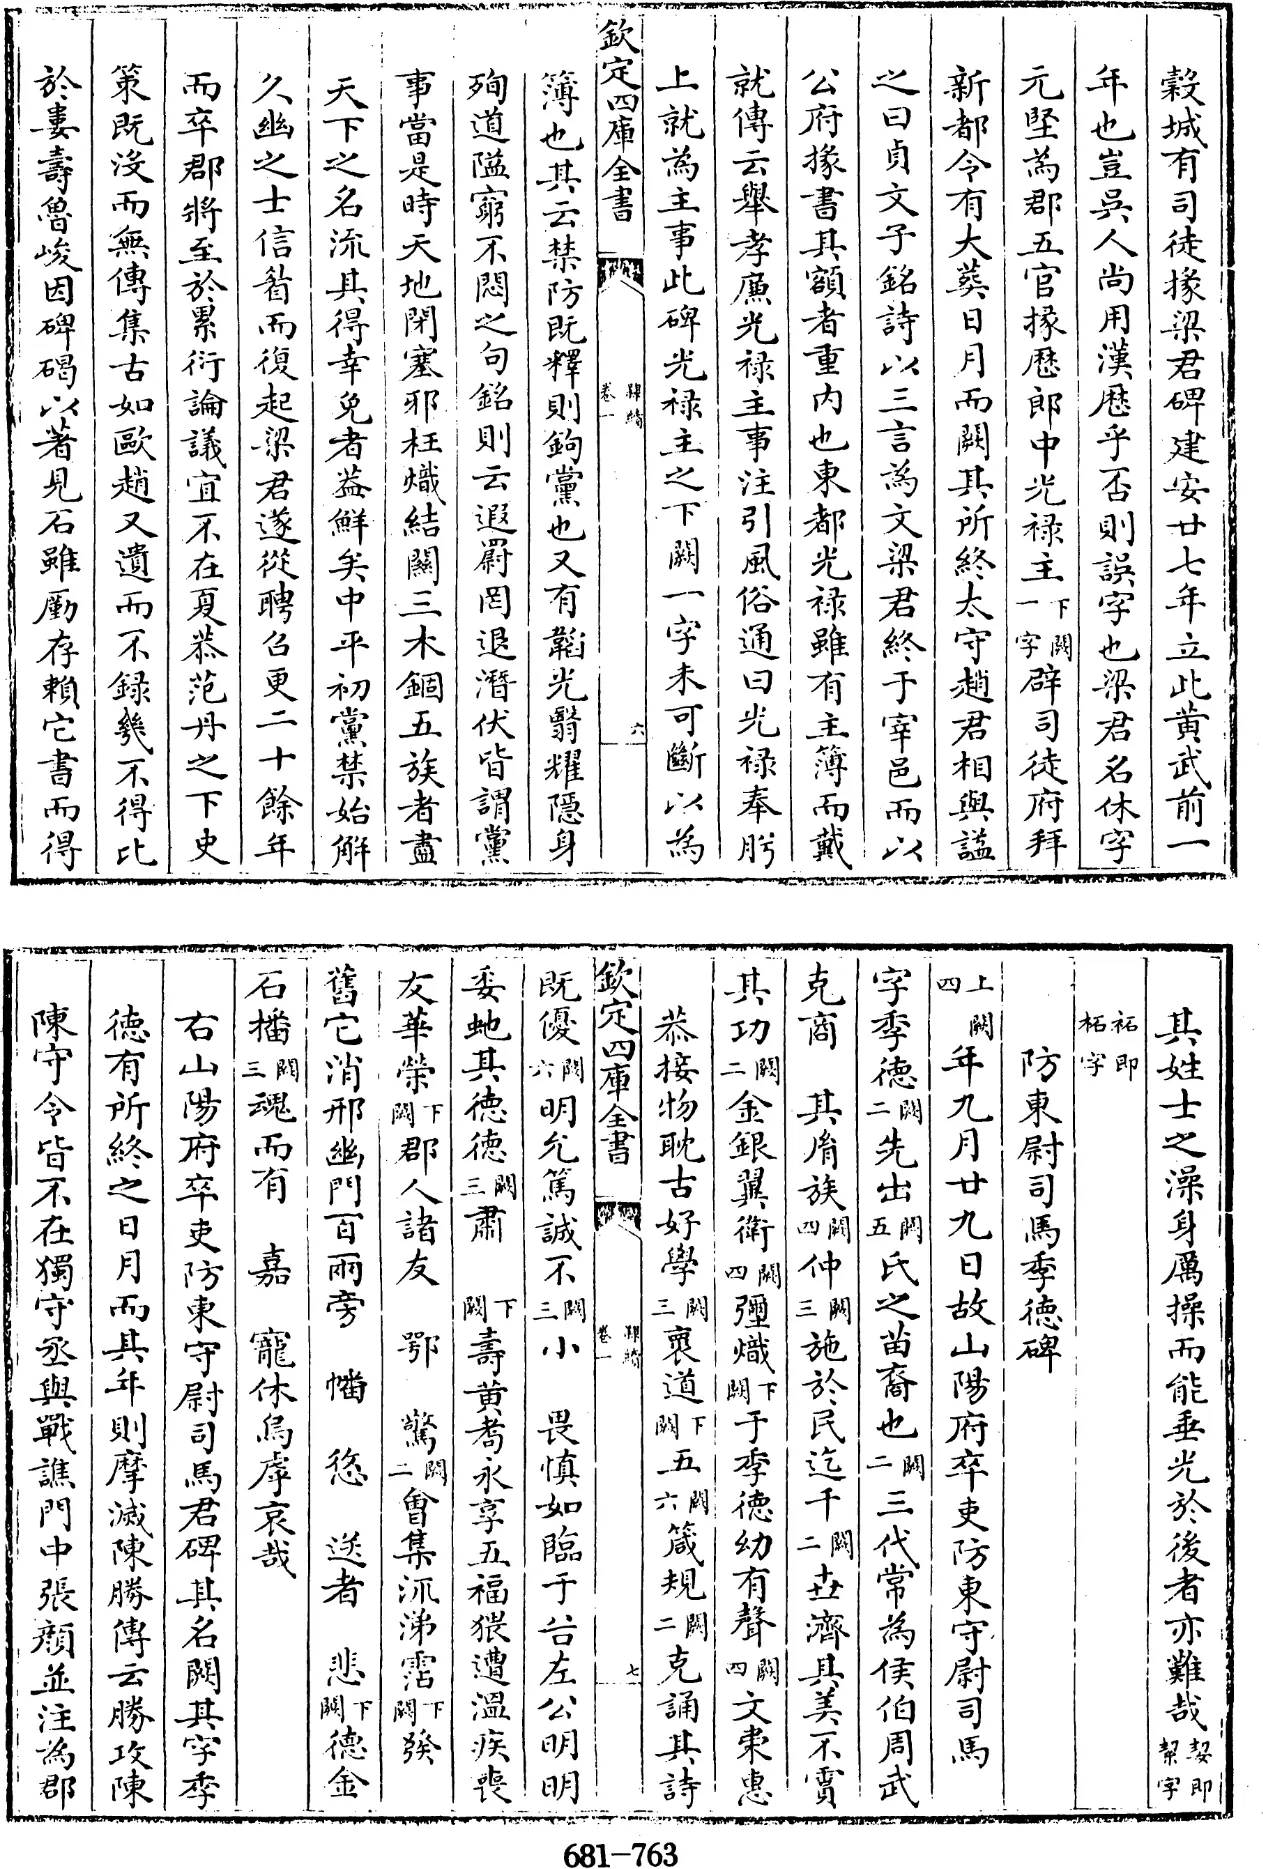 穀城有司徒掾梁君碑建安廿七年立此黄武前一
年也豈吳人尚用漢厯乎否則誤字也梁君名休字
元堅為郡五官掾歷郎中光祿主下闕一字辟司徒府拜
新都令有大葬日月而闕其所終太守趙君相與諡
之曰貞文子銘詩以三言為文梁君終于宰邑而以
公府掾書其額者重内也東都光祿雖有主簿而戴
就傳云舉孝廉光祿主事注引風俗通曰光祿奉肹
上就為主事此碑光祿主之下闕一字未可斷以為
欽定四庫全書 隸續卷一 六
簿也其云禁防既釋則鉤黨也又有韜光翳耀隱身
殉道隘窮不悶之句銘則云遐罻罔退潛伏皆謂黨
事當是時天地閉塞邪枉熾結關三木錮五族者盡
天下之名流其得幸免者葢鮮矣中平初黨禁始解
久幽之士信眉而復起梁君遂從聘召更二十餘年
而卒郡將至於累行論議宜不在夏恭范丹之下史
策既沒而無傳集古如歐趙又遺而不錄幾不得比
於婁壽魯峻因碑碣以著見石雖劘存賴它書而得
其姓士之澡身厲操而能垂光於後者亦難哉㓞即絜字
袥即柘字
防東尉司馬季德碑
上闕四年九月廿九日故山陽府卒吏防東守尉司馬
字季德闕二先出闕五氏之苗裔也闕二三代常為侯伯周武
克商 其胄族闕四仲闕三施於民迄千闕二卋濟其美不霣
其功闕二金銀翼衛闕四彌熾下闕于季德幼有聲闕四文柬惠
恭接物耽古好學闕三裦道下闕五闕六箴規闕二克誦其詩
欽定四庫全書 隸續卷一 七
既優闕六明允篤誠不闕三小 畏慎如臨于谷左公明明
委虵其德德闕三肅 下闕壽黄耇永享五福猥遭溫疾喪
友華榮下闕郡人諸友 鄂 驚闕二會集泒涕霑下闕發
舊它消邢幽門百兩旁 幡 㥶 送者 悲下闕德金
石播闕三魂而有 嘉 寵休烏虖哀哉
右山陽府卒吏防東守尉司馬君碑其名闕其字季
德有所終之日月而其年則摩滅陳勝傳云勝攻陳
陳守令皆不在獨守丞與戰譙門中張顔並注為郡
681-763